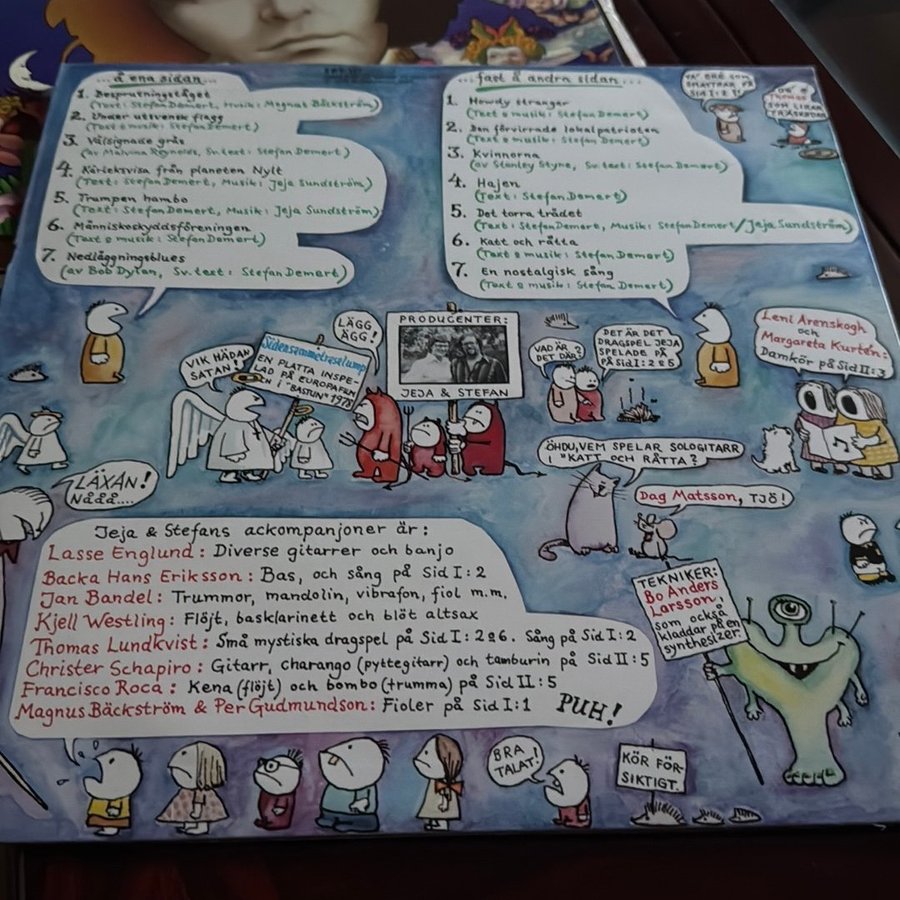 ...å ena sidan...
1. Besprutningståget
(Text: Stefan Demert, Musik: Magnus Bäckström)
2. Under utsvensk flagg
(Text & musik: Stefan Demert)
3. Välsignade gräs
(av Malvina Reynolds, Sv. text: Stefan Demert)
4. Kärleksvisa från planeten Nylt
(Text: Stefan Demert, Musik: Jeja Sundström)
5. Trumpen hambo
(Text: Stefan Demert, Musik: Jeja Sundström)
6. Människoskyddsföreningen
(Text & musik: Stefan Demert)
7. Nedläggningsblues
(av Bob Dylan, Sv. text: Stefan Demert)
...fast å andra sidan...
1. Howdy stranger
(Text & musik: Stefan Demert)
2. Den förvirrade lokalpatrioten
(Text & musik: Stefan Demert)
3. Kvinnorna
(av Stanley Styne, Sv. text: Stefan Demert)
4. Hajen
(Text: Stefan Demert)
5. Det torra trädet
(Text: Stefan Demert, Musik: Stefan Demert/Jeja Sundström)
6. Katt och råtta
(Text & musik: Stefan Demert)
7. En nostalgisk sång
(Text & musik: Stefan Demert)
SID I:2!
THOMAS
SOM LIRAR
TRÄSKEDAR
VIK HÄDAN
SATAN!
Sidensammetrasalump
EN PLATTA INSPE-
LAD PÅ EUROPAFILM
1978
LÄGG
ÄGG!
PRODUCENTER:
JEJA & STEFAN
VAD ÄR
DET DÄR?
DET ÄR DET
DRAGSPEL JEJA
SPELADE PÅ
PÅ Sid I: 2 & 5
Leni Arenskogh
och
Margareta Kurtén:
Damkör på Sid II:3
LÄXAN!
NÅÅÅ....
ÖHDU, VEM SPELAR SOLOGITARR
I "KATT OCH RÅTTA?
Dag Matsson, TJÖ!
Jeja & Stefans ackompanjoner är:
Lasse Englund: Diverse gitarrer och banjo
Backa Hans Eriksson: Bas, och sång på Sid I:2
Jan Bandel: Trummor, mandolin, vibrafon, fiol m.m.
Kjell Westling: Flöjt, basklarinett och blöt altsax
Thomas Lundkvist: Små mystiska dragspel på Sid I: 2 & 6. Sång på Sid I:2
Christer Schapiro: Gitarr, charango (pyttegitarr) och tamburin på Sid II:5
Francisco Roca: Kena (flöjt) och bombo (trumma) på Sid II:5
Magnus Bäckström & Per Gudmundson: Fioler på Sid I:1
PUH!
TEKNIKER:
Bo Anders
Larsson,
som också
kladdar på en
synthesizer.
BRA
TALAT!
KÖR FÖR-
SIKTIGT.